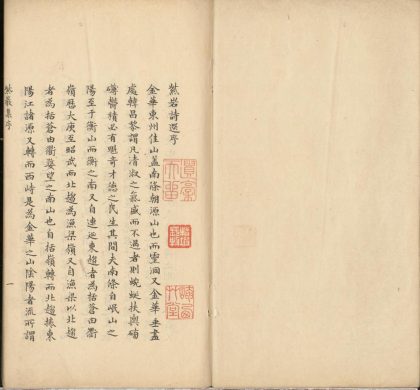 紫岩詩選序
金華東州佳山蓋南條朝源山也而靈洞又金華垂盡
處韓昌黎謂凡清淑之氣盛而不過者則蜿蟺扶輿磅
礴鬱積必有魁奇才德之民生其間夫南條自岷山之
陽至于衡山而衡之南又自連延東趨者為括蒼由衢
嶺歷大庾至昭武而北趨為漁梁嶺又自漁梁以北趨
者為括蒼由婺之南山也自括嶺轉而北趨捲東
陽江諸源又轉而西峙是為金華之山陰陽者流所謂
紫巖集序
一